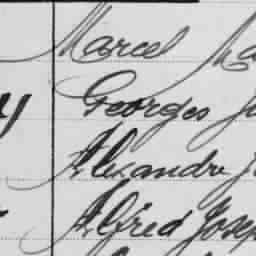 Marcel Ma
Georges J
Alexandre J
Alfred Josep